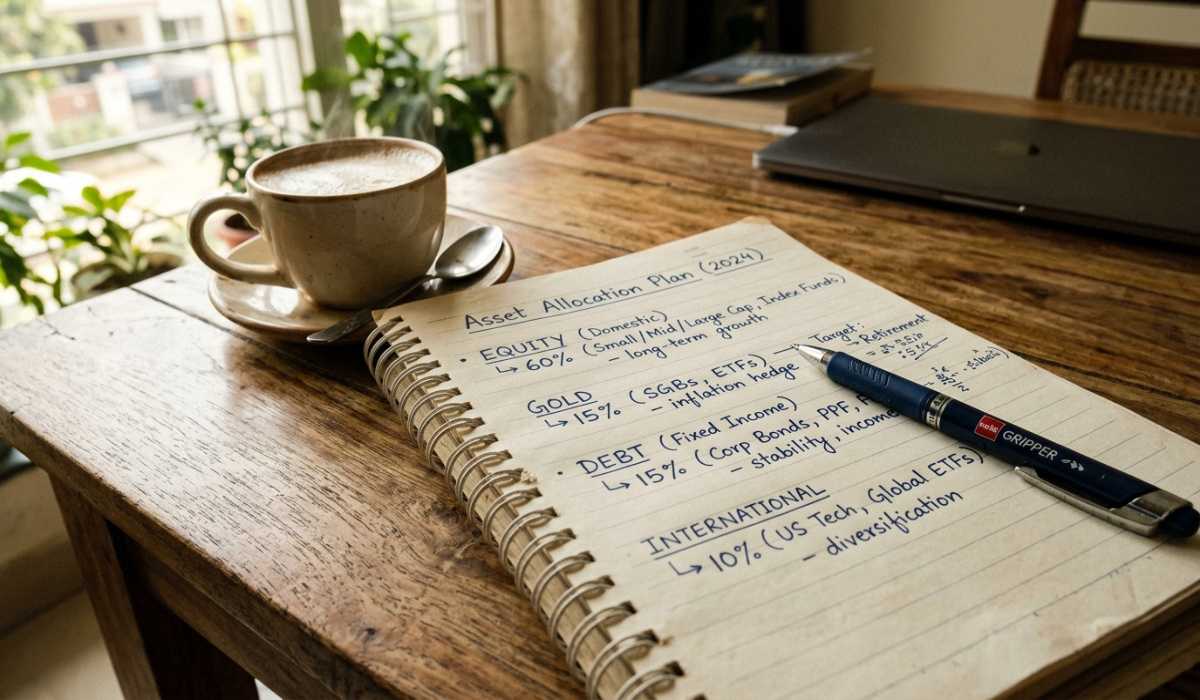 Asset Allocation Plan (2024)
• EQUITY (Domestic)
↳ 60% (Small/Mid/Large Cap, Index Funds)
– long-term growth
→ Target:
– Retirement
GOLD
↳ 15% (SGBs, ETFs)
– inflation hedge
• DEBT (Fixed Income)
↳ 15% (Corp Bonds, PPF,
– stability, income
INTERNATIONAL
↳ 10% (US Tech, Global ETFs)
– diversification
GRIPPER